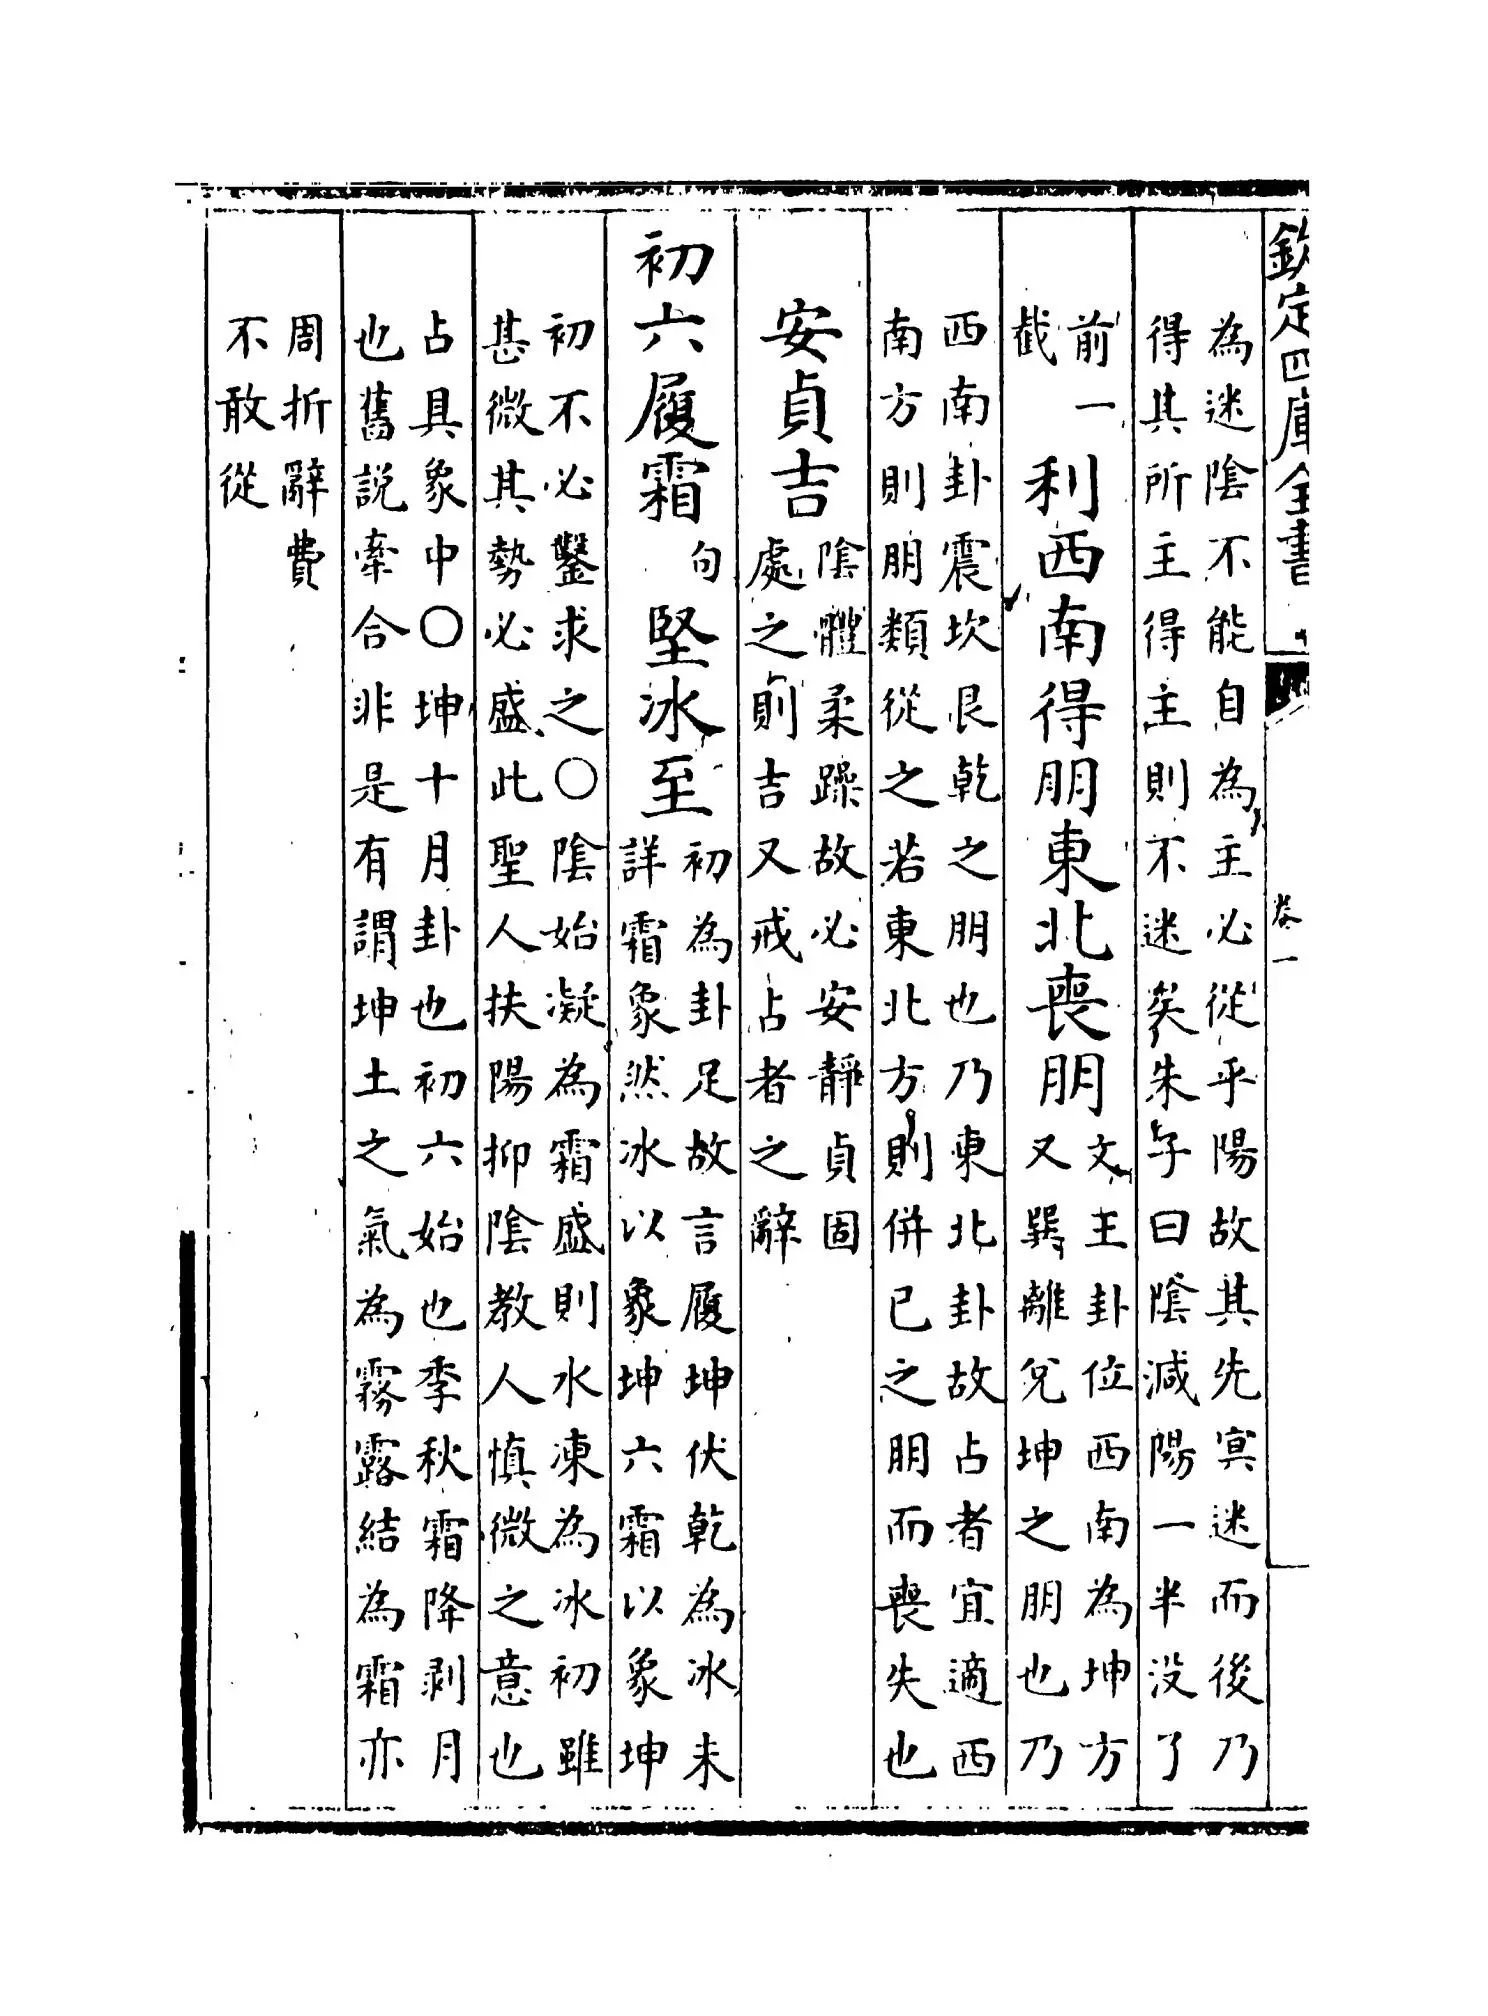 欽定四庫全書
卷一
為迷陰不能自為主必從乎陽故其先冥迷而後乃
得其所主得主則不迷矣朱子曰陰減陽一半没了
前一
截
利西南得朋東北喪朋
文王卦位西南為坤方
又巽離兌坤之朋也乃
西南卦震坎艮乾之朋也乃東北卦故占者宜適西
南方則朋類從之若東北方則併已之朋而喪失也
安貞吉
陰體柔躁故必安靜貞固
處之則吉又戒占者之辭
初六履霜
句
堅冰至
初為卦足故言履坤伏乾為冰未
詳霜象然冰以象坤六霜以象坤
初不必鑿求之○陰始凝為霜盛則水凍為冰初雖
甚微其勢必盛此聖人扶陽抑陰教人慎微之意也
占具象中○坤十月卦也初六始也季秋霜降剥月
也舊説牽合非是有謂坤土之氣為霧露結為霜亦
周折辭費
不敢從